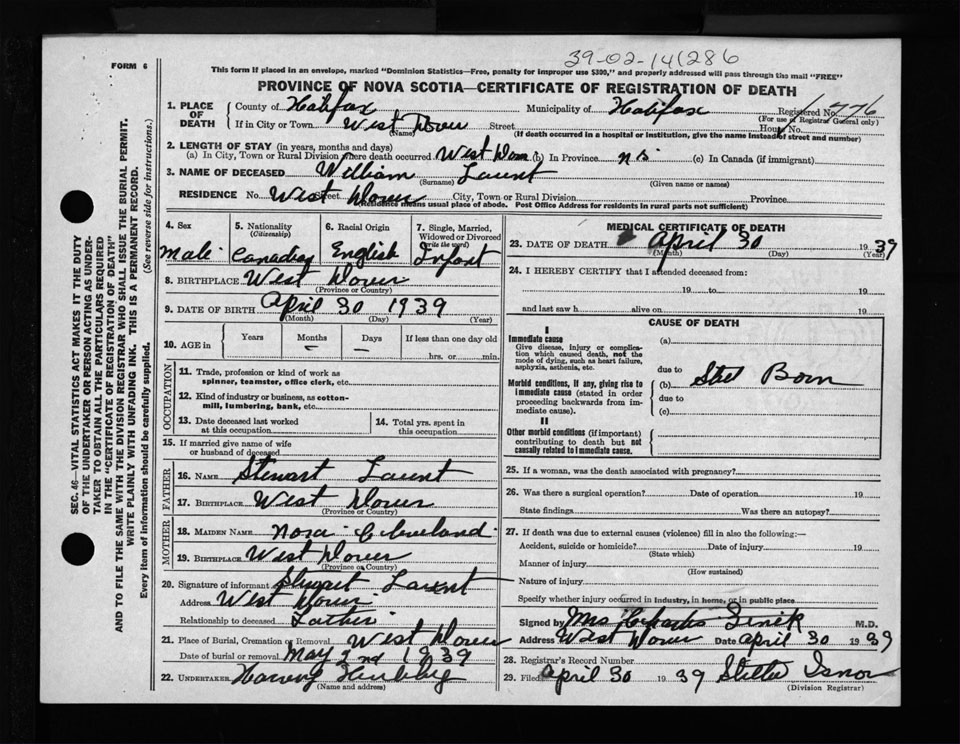 39-02-14(286
FORM 6
This form if placed in an envelope, marked "Dominion Statistics—Free, penalty for improper use $300," and properly addressed will pass through the mail "FREE"
PROVINCE OF NOVA SCOTIA—CERTIFICATE OF REGISTRATION OF DEATH
1. PLACE OF DEATH County of Halifax Municipality of Halifax Registered No. 1776
(For use of Registrar General only)
If in City or Town West Dover Street House No.
(Name) (If death occurred in a hospital or institution, give the name instead of street and number)
2. LENGTH OF STAY (in years, months and days)
(a) In City, Town or Rural Division where death occurred West Dover (b) In Province N S (c) In Canada (if immigrant)
3. NAME OF DECEASED William Launt
(Surname) (Given name or names)
RESIDENCE No. West Dover Street City, Town or Rural Division Province
(Residence means usual place of abode. Post Office Address for residents in rural parts not sufficient)
4. Sex Male
5. Nationality (Citizenship) Canadian
6. Racial Origin English
7. Single, Married, Widowed or Divorced (write the word) Infant
8. BIRTHPLACE West Dover
(Province or Country)
9. DATE OF BIRTH April 30 1939
(Month) (Day) (Year)
10. AGE in Years Months Days If less than one day old
hrs. or min.
— —
OCCUPATION
11. Trade, profession or kind of work as spinner, teamster, office clerk, etc.
12. Kind of industry or business, as cotton-mill, lumbering, bank, etc.
13. Date deceased last worked at this occupation
14. Total yrs. spent in this occupation
15. If married give name of wife or husband of deceased
FATHER
16. NAME Stewart Launt
17. BIRTHPLACE West Dover
(Province or Country)
MOTHER
18. MAIDEN NAME Nora Cleveland
19. BIRTHPLACE West Dover
(Province or Country)
20. Signature of informant Stewart Launt
Address West Dover
Relationship to deceased Father
21. Place of Burial, Cremation or Removal West Dover
Date of burial or removal May 2nd 1939
22. UNDERTAKER Harvey
(Name and address)
MEDICAL CERTIFICATE OF DEATH
23. DATE OF DEATH April 30 1939
(Month) (Day) (Year)
24. I HEREBY CERTIFY that I attended deceased from:
19 to 19
and last saw h alive on 19
CAUSE OF DEATH
I
Immediate cause
Give disease, injury or complication which caused death, not the mode of dying, such as heart failure, asphyxia, asthenia, etc.
(a)
due to
Morbid conditions, if any, giving rise to immediate cause (stated in order proceeding backwards from immediate cause).
(b) Stel Born
due to
(c)
II
Other morbid conditions (if important) contributing to death but not causally related to immediate cause.
25. If a woman, was the death associated with pregnancy?
26. Was there a surgical operation? Date of operation 19
State findings Was there an autopsy?
27. If death was due to external causes (violence) fill in also the following:—
Accident, suicide or homicide? Date of injury 19
(State which)
Manner of injury
(How sustained)
Nature of injury
Specify whether injury occurred in industry, in home, or in public place
Signed by Mrs Charles M.D.
Address West Dover Date April 30 1939
28. Registrar's Record Number
29. Filed April 30 1939 Isnor
(Division Registrar)
SEC. 46—VITAL STATISTICS ACT MAKES IT THE DUTY
OF THE UNDERTAKER OR PERSON ACTING AS UNDER-
TAKER TO OBTAIN ALL THE PARTICULARS REQUIRED
IN THE "CERTIFICATE OF REGISTRATION OF DEATH"
AND TO FILE THE SAME WITH THE DIVISION REGISTRAR WHO SHALL ISSUE THE BURIAL PERMIT.
WRITE PLAINLY WITH UNFADING INK. THIS IS A PERMANENT RECORD.
Every item of information should be carefully supplied. (See reverse side for instructions.)